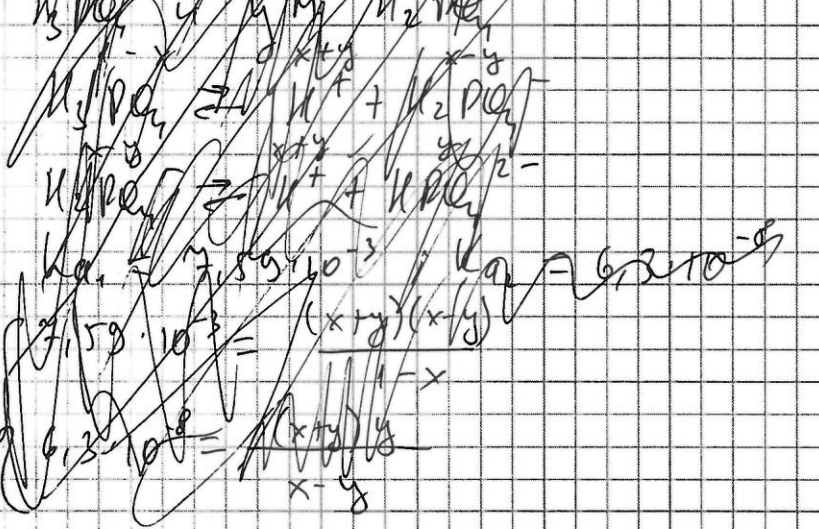 H₃PO₄ H₂PO₄
1-x x+y x-y
H₃PO₄ ⇄ H⁺ + H₂PO₄⁻
x-y x+y y
H₂PO₄⁻ ⇄ H⁺ + HPO₄²⁻
Ka₁ = 7,59·10⁻³ ; Ka₂ = 6,3·10⁻⁸
7,59·10⁻³ = (x+y)(x-y) / 1-x
6,3·10⁻⁸ = (x+y)y / x-y